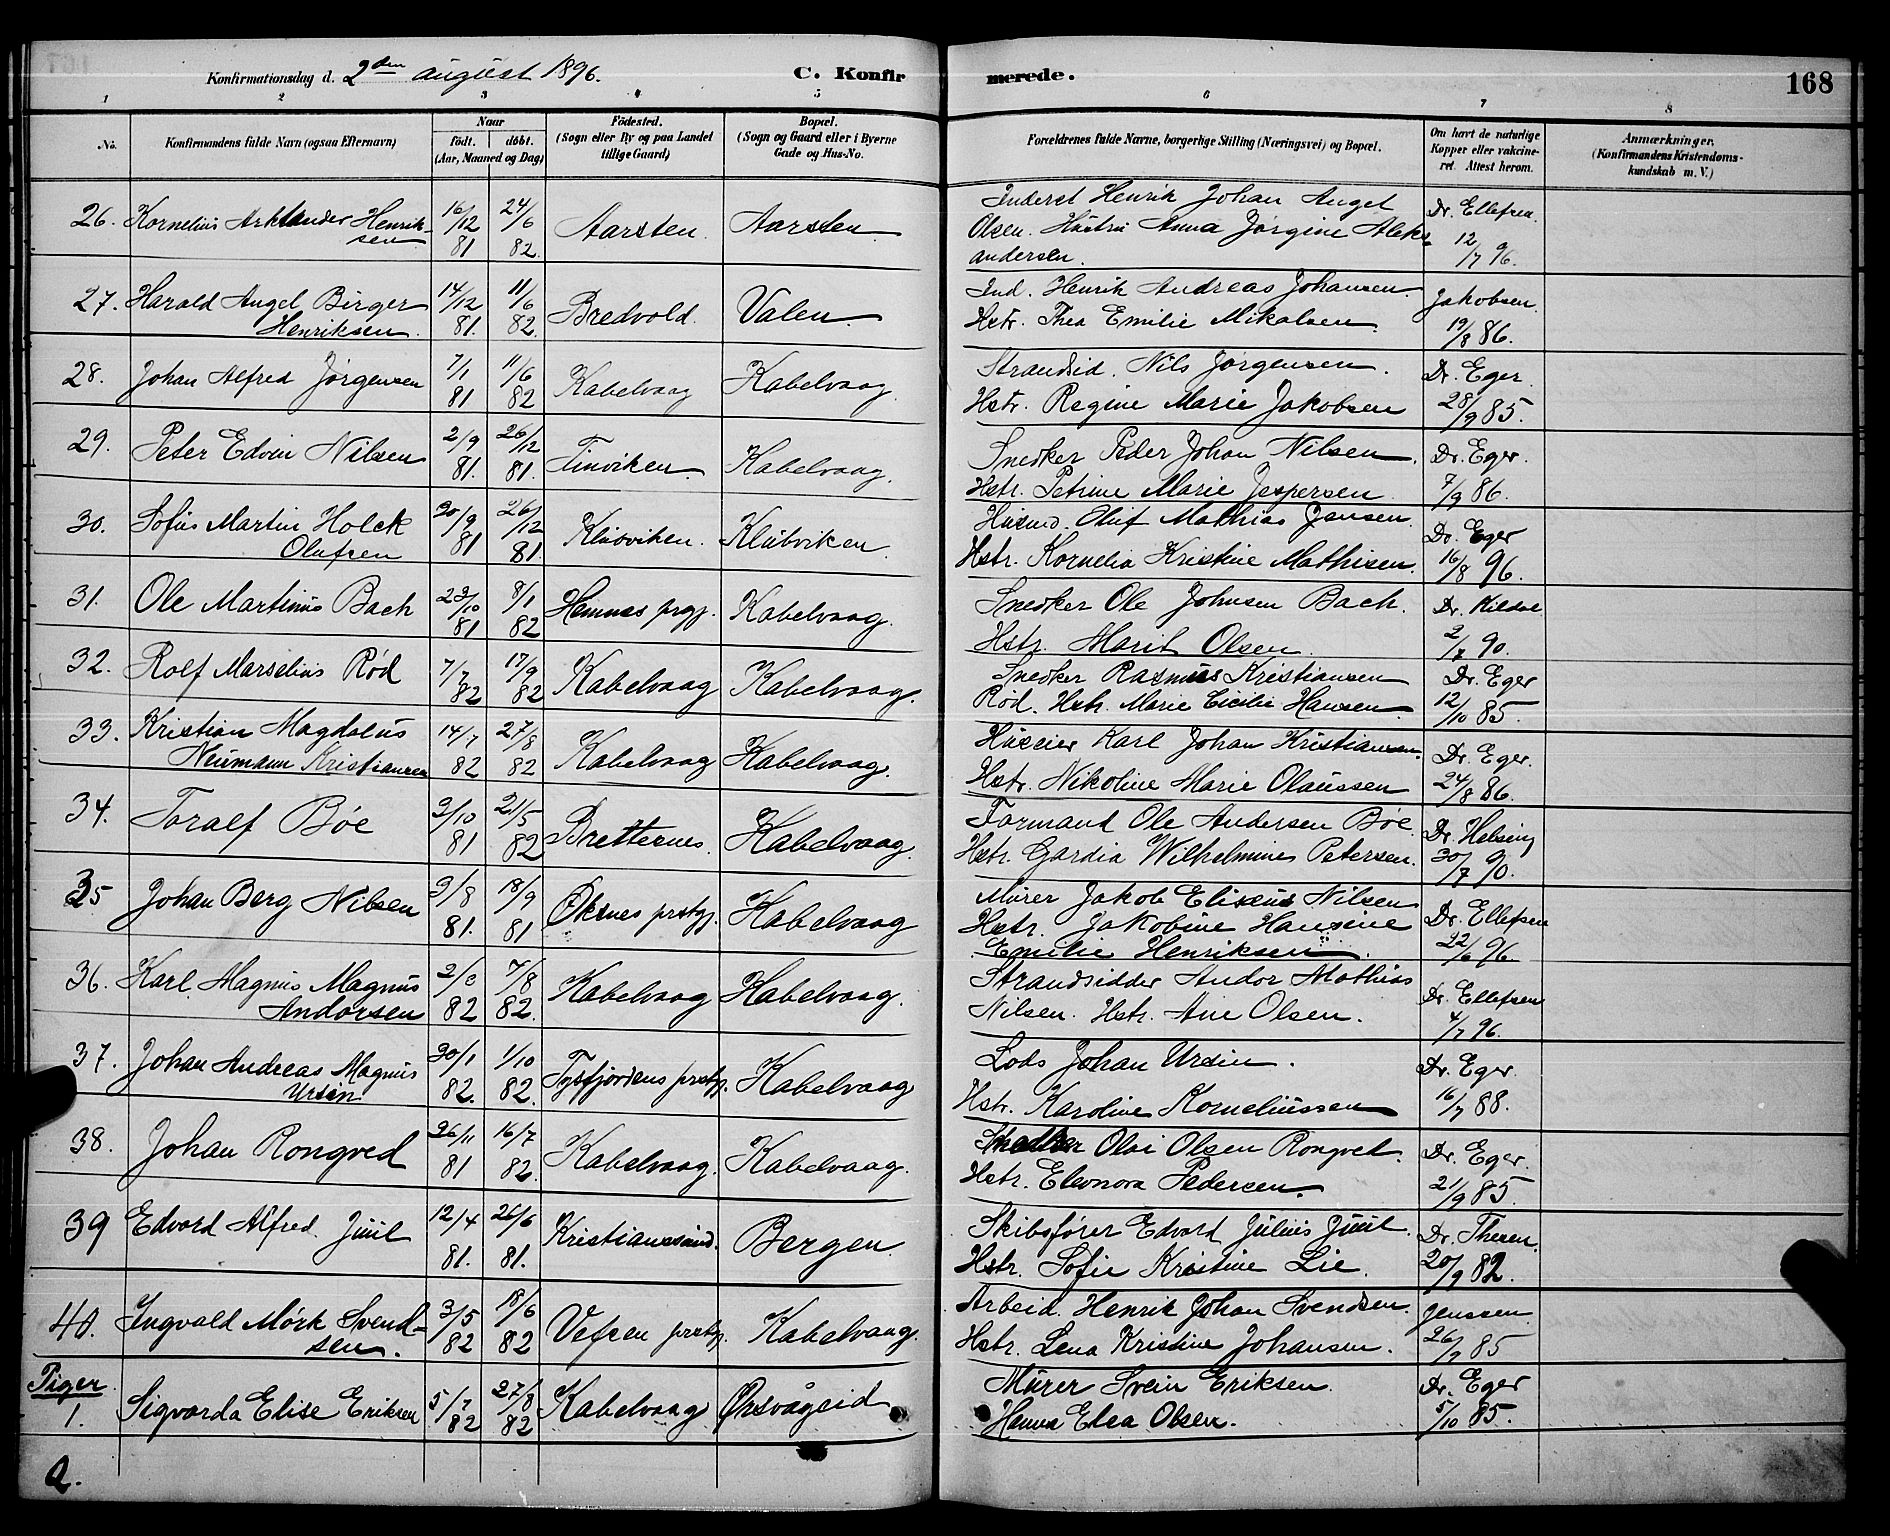 Konfirmationsdag d. 2den august 1896.
C. Konfirmerede.
168
1 2 3 4 5 6 7 8
No.
Konfirmandens fulde Navn (ogsaa Efternavn)
Naar
født. døbt.
(Aar, Maaned og Dag)
Fødested.
(Sogn eller By og paa Landet
tillige Gaard)
Bopæl.
(Sogn og Gaard eller i Byerne
Gade og Hus-No.
Forældrenes fulde Navne, borgerlige Stilling (Næringsvei) og Bopæl.
Om havt de naturlige
Kopper eller vakcine-
ret. Attest herom.
Anmærkninger.
(Konfirmandens Kristendoms-
kundskab m. V.)
26. Kornelius Henrik-
sen 16/12 81 24/6 82. Aarsten. Aarsten.
Inderst Henrik Johan Angel
Olsen. Hustru Anna Jørgine Aleks-
andersen.
Dr. Ellefsen. 12/7 96.
27. Harald Angel Birger
Henriksen. 14/12 81. 11/6 82. Bredvold. Valen.
Ind. Henrik Andreas Johansen.
Hstr. Thea Emilie Mikalsen.
Jakobsen 19/8 86.
28. Johan Alfred Jørgensen 7/1 81 11/6 82 Kabelvaag Kabelvaag.
Strandsid. Nils Jørgensen.
Hstr. Regine Marie Jakobsen
Dr. Eger. 28/9 85.
29. Peter Edvin Nilsen 2/9 81. 26/12 81. Finviken. Kabelvaag.
Snedker Peder Johan Nilsen.
Hstr. Petrine Marie Jespersen.
Dr. Eger. 7/9 86.
30. Sofus Martin Holck
Olufsen 30/9 81 26/12 81 Klubviken. Klubviken.
Husmd. Oluf Mathias Jensen.
Hstr. Kornelia Kristine Mathisen.
Dr. Eger 16/8 96.
31. Ole Martinus Bach 23/10 81 8/1 82 Hemnes prgj. Kabelvaag.
Snedker Ole Johnsen Bach.
Hstr. Marit Olsen.
Dr. Kildal 2/7 90.
32. Rolf Marselius Rød 7/7 82 17/9 82 Kabelvaag Kabelvaag.
Snedker Rasmus Kristiansen
Rød. Hstr. Marie Cicilie Hansen.
Dr. Eger 12/10 85.
33. Kristian Magdalus
Neumann Kristiansen 14/7 82 27/8 82 Kabelvaag Kabelvaag.
Huseier Karl Johan Kristiansen.
Hstr. Nikoline Marie Olaussen
Dr. Eger. 24/8 86.
34. Toralf Bøe 3/10 81 21/5 82 Brettesnes. Kabelvaag.
Formand Ole Andersen Bøe.
Hstr. Gardia Wilhelmine Petersen.
Dr. Helsing 30/7 90.
35 Johan Berg Nilsen 3/8 81. 18/9 81 Øksnes prstgj. Kabelvaag
Murer Jakob Eliseus Nilsen
Hstr. Jakobine Hansine
Emilie Henriksen.
Dr. Ellefsen 22/6 96.
36. Karl Magnus Magnus
Andorsen 82 7/8 82. Kabelvaag Kabelvaag.
Strandsidder Andor Mathias
Nilsen. Hstr. Ane Olsen.
Dr. Ellefsen 4/7 96.
37. Johan Andreas Magnus
Ursin 30/1 82. 1/10 82. Tysfjordens prstgj. Kabelvaag
Lods Johan Ursin.
Hstr. Karoline Korneliussen
Dr. Eger. 16/7 88.
38. Johan Rongved 26/11 81 16/7 82. Kabelvaag. Kabelvaag.
Olai Olsen Rongvet.
Hstr. Eleonora Pedersen.
Dr. Eger. 21/9 85.
39 Edvard Alfred Juul 12/4 81. 26/6 81. Kristianssund. Bergen.
Skibsfører Edvard Julius Juul.
Hstr. Sofie Kristine Lie.
Dr. Thesen. 20/9 82.
40. Ingvald Mørk Svend-
sen. 3/5 82 18/6 82 Vefsen prstgj. Kabelvaag.
Arbeid. Henrik Johan Svendsen.
Hstr. Lena Kristine Johansen.
Jenssen. 26/9 85
Piger
1. Sigvarda Elise Eriksen 5/7 82 27/8 82 Kabelvaag Ørsvågeid
Murer Svein Eriksen.
Hanna Elea Olsen.
Dr. Eger 5/10 85.
2.